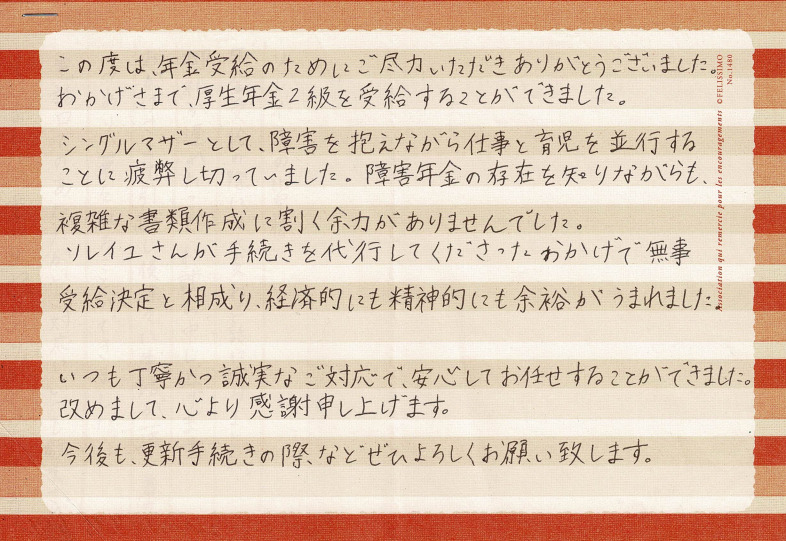 この度は、年金受給のためにご尽力いただきありがとうございました。
おかげさまで、厚生年金2級を受給することができました。
シングルマザーとして、障害を抱えながら仕事と育児を並行する
ことに疲弊し切っていました。障害年金の存在を知りながらも、
複雑な書類作成に割く余力がありませんでした。
ソレイユさんが手続きを代行してくださったおかげで無事
受給決定と相成り、経済的にも精神的にも余裕がうまれました。
いつも丁寧かつ誠実なご対応で、安心してお任せすることができました。
改めまして、心より感謝申し上げます。
今後も、更新手続きの際、などぜひよろしくお願い致します。
©FELISSIMO
No.1480
Association qui remercie pour les encouragements